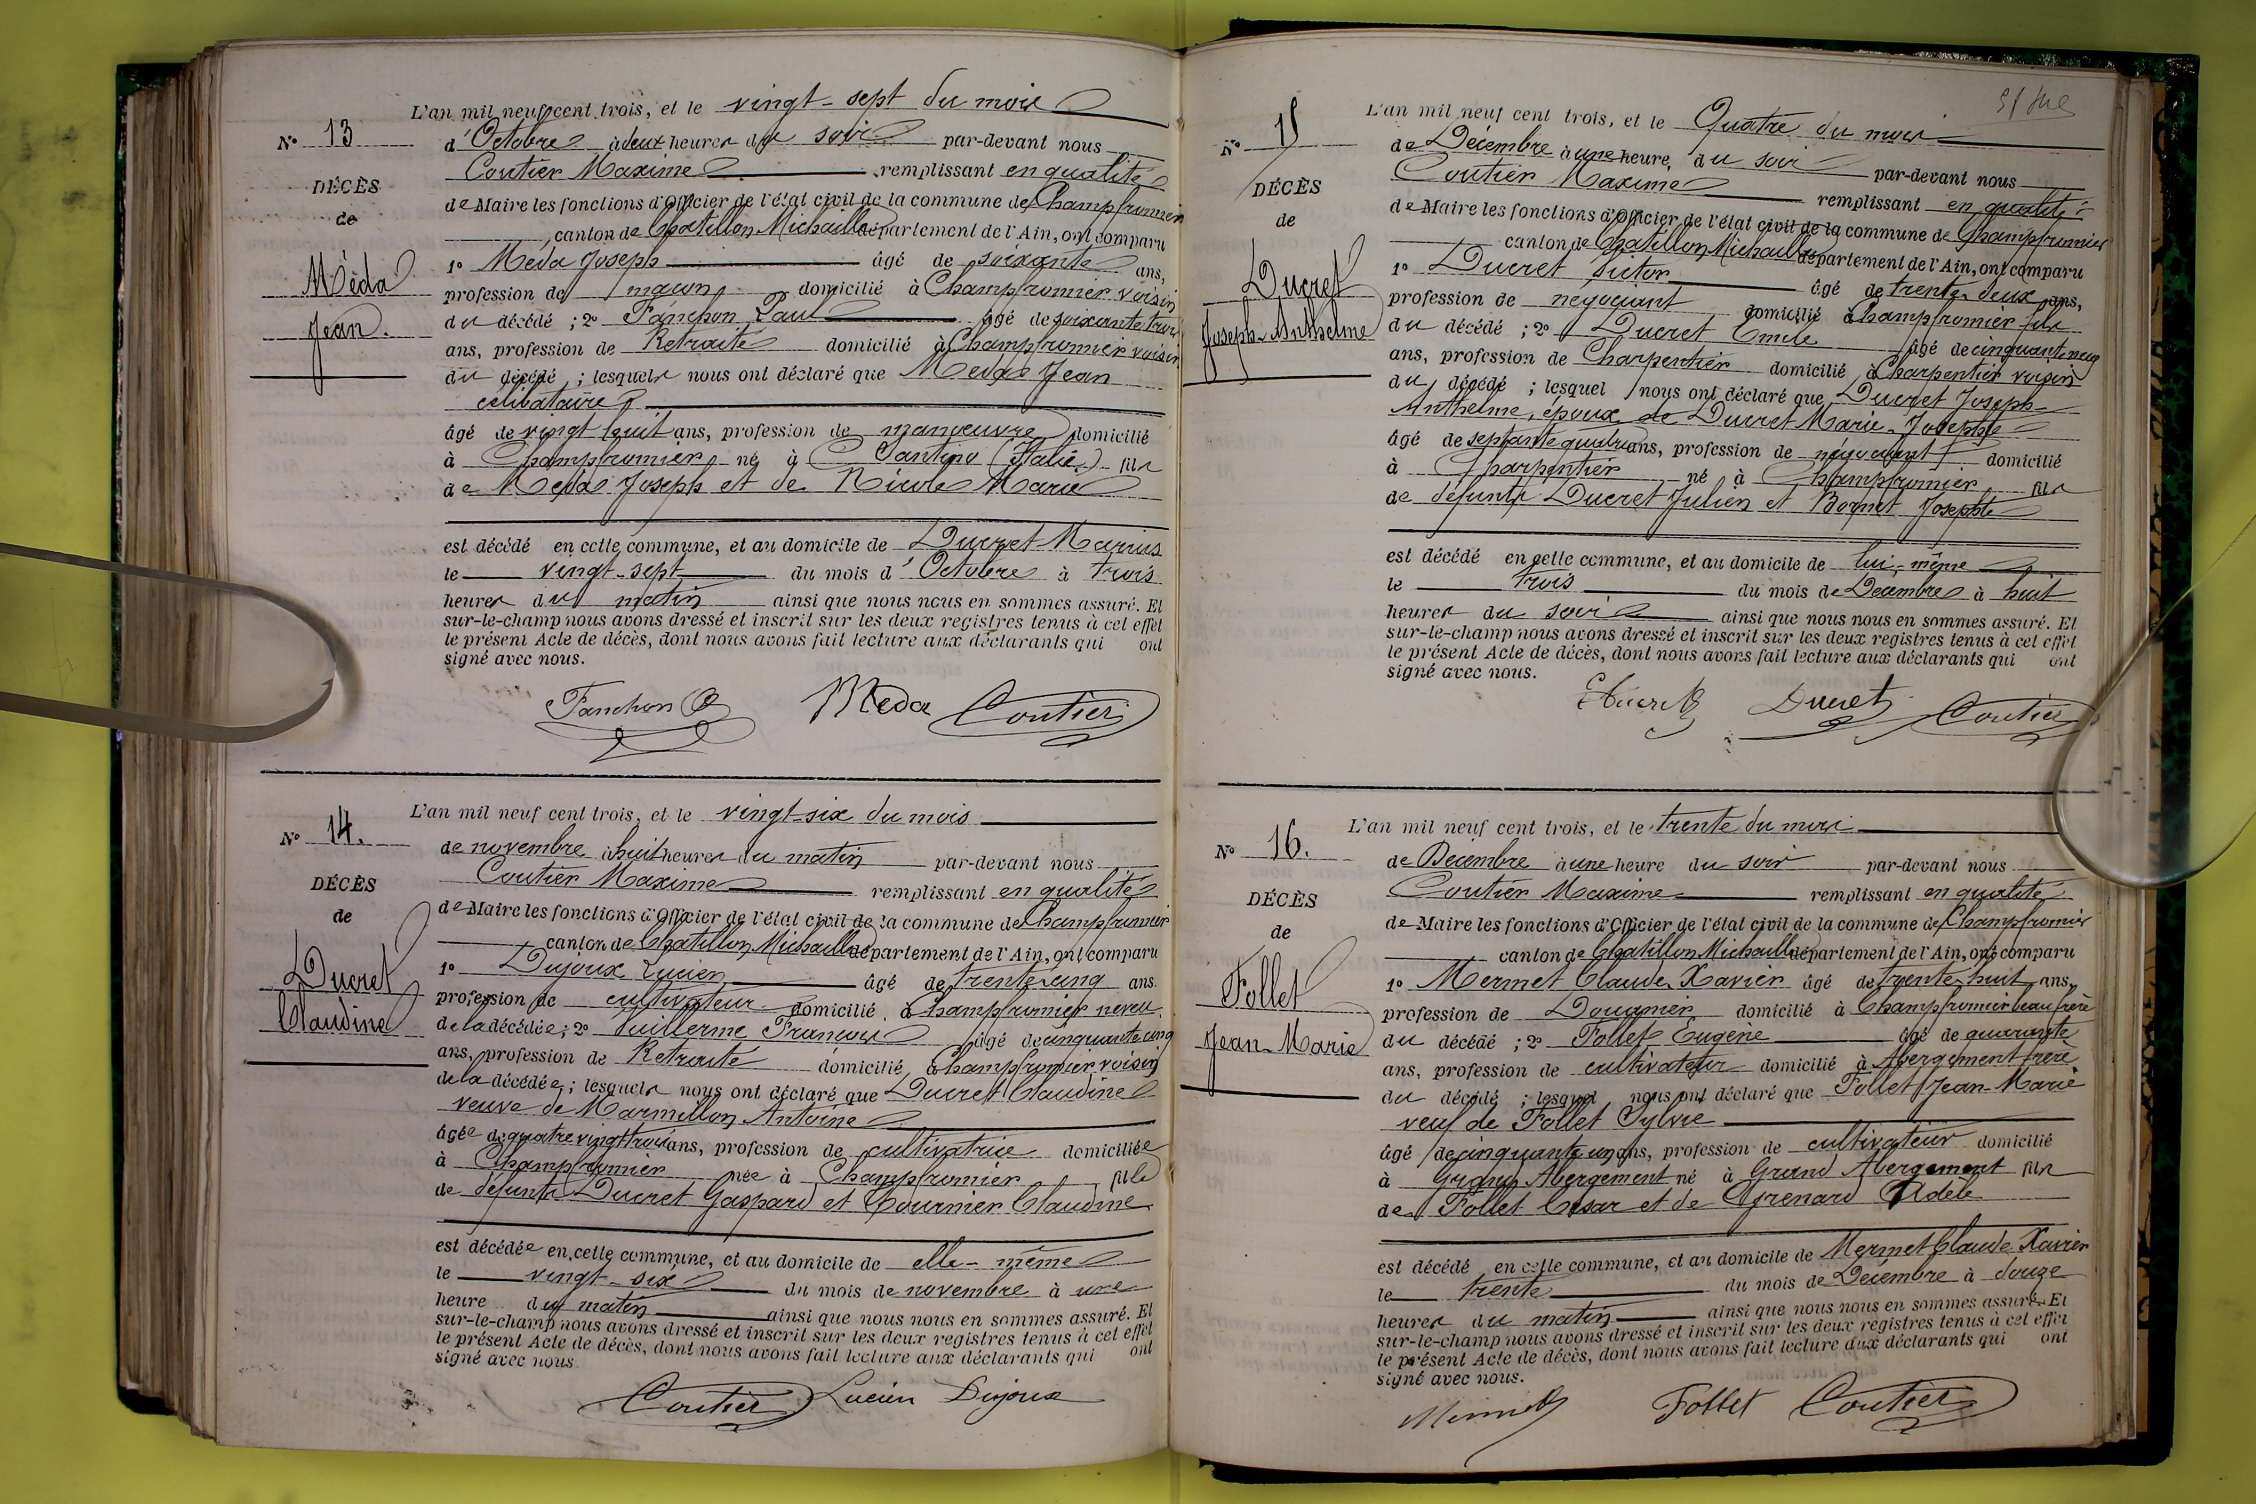 L'an mil neuf cent trois, et le vingt-sept du mois
N° 13
d'Octobre à deux heures du soir par-devant nous
Coutier Maxime remplissant en qualité
DÉCÈS
de Maire les fonctions d'Officier de l'état civil de la commune de Champfromier
de
canton de Chatillon Michaille département de l'Ain, ont comparu
Méda
Jean.
1° Méda Joseph âgé de soixante ans,
profession de maçon domicilié à Champfromier voisin
du décédé ; 2° Fanchon Paul âgé de soixante trois
ans, profession de Retraité domicilié à Champfromier voisin
du décédé ; lesquels nous ont déclaré que Méda Jean
célibataire
âgé de vingt huit ans, profession de manœuvre domicilié
à Champfromier né à C Santino (Italie) fils
de Méda Joseph et de Nicole Marie
est décédé en cette commune, et au domicile de Ducret Marius
le vingt-sept du mois d'Octobre à trois
heures du matin ainsi que nous nous en sommes assuré. Et
sur-le-champ nous avons dressé et inscrit sur les deux registres tenus à cet effet
le présent Acte de décès, dont nous avons fait lecture aux déclarants qui ont
signé avec nous.
Fanchon Meda Coutier
L'an mil neuf cent trois, et le vingt-six du mois
N° 14.
de novembre à huit heures du matin par-devant nous
Coutier Maxime remplissant en qualité
DÉCÈS
de Maire les fonctions d'Officier de l'état civil de la commune de Champfromier
de
canton de Chatillon Michaille département de l'Ain, ont comparu
Ducret
Claudine
1° Dujoux Lucien âgé de trente cinq ans
profession de cultivateur domicilié à Champfromier neveu
de la décédée ; 2° Guillerme François âgé de cinquante cinq
ans, profession de Retraité domicilié à Champfromier voisin
de la décédée ; lesquels nous ont déclaré que Ducret Claudine
veuve de Marmillon Antoine
âgée de quatre vingt trois ans, profession de cultivatrice domiciliée
à Champfromier née à Champfromier fille
de défunts Ducret Gaspard et Tournier Claudine
est décédée en cette commune, et au domicile de elle-même
le vingt-six du mois de novembre à une
heure du matin ainsi que nous nous en sommes assuré. Et
sur-le-champ nous avons dressé et inscrit sur les deux registres tenus à cet effet
le présent Acte de décès, dont nous avons fait lecture aux déclarants qui ont
signé avec nous
Coutier Lucien Dujoux
L'an mil neuf cent trois, et le Quatre du mois
N° 15
de Décembre à une heure du soir par-devant nous
Coutier Maxime remplissant en qualité
DÉCÈS
de Maire les fonctions d'Officier de l'état civil de la commune de Champfromier
de
canton de Chatillon Michaille département de l'Ain, ont comparu
Ducret
Joseph-Anthelme
1° Ducret Victor âgé de trente-deux ans,
profession de négociant domicilié à Champfromier fils
du décédé ; 2° Ducret Emile âgé de cinquante neuf
ans, profession de Charpentier domicilié à Charpentier voisin
du décédé ; lesquel nous ont déclaré que Ducret Joseph-
Anthelme, époux de Ducret Marie-Josephte
âgé de septante quatre ans, profession de négociant domicilié
à Charpentier né à Champfromier fils
de défunts Ducret Julien et Bornet Josephte
est décédé en cette commune, et au domicile de lui-même
le trois du mois de Décembre à huit
heures du soir ainsi que nous nous en sommes assuré. Et
sur-le-champ nous avons dressé et inscrit sur les deux registres tenus à cet effet
le présent Acte de décès, dont nous avons fait lecture aux déclarants qui ont
signé avec nous.
Ducret Coutier
L'an mil neuf cent trois, et le trente du mois
N° 16.
de Décembre à une heure du soir par-devant nous
Coutier Maxime remplissant en qualité
DÉCÈS
de Maire les fonctions d'Officier de l'état civil de la commune de Champfromier
de
canton de Chatillon Michaille département de l'Ain, ont comparu
Follet
Jean-Marie
1° Mermet Claude Xavier âgé de trente-huit ans,
profession de Douanier domicilié à Champfromier beau frère
du décédé ; 2° Follet Eugène âgé de quarante
ans, profession de cultivateur domicilié à Abergement frère
du décédé ; lesquel nous ont déclaré que Follet Jean-Marie
veuf de Follet Sylvie
âgé de cinquante un ans, profession de cultivateur domicilié
à Grand Abergement né à Grand Abergement fils
de Follet César et de Grenard Adèle
est décédé en cette commune, et au domicile de Mermet Claude Xavier
le trente du mois de Décembre à douze
heures du matin ainsi que nous nous en sommes assuré. Et
sur-le-champ nous avons dressé et inscrit sur les deux registres tenus à cet effet
le présent Acte de décès, dont nous avons fait lecture aux déclarants qui ont
signé avec nous.
Follet Coutier